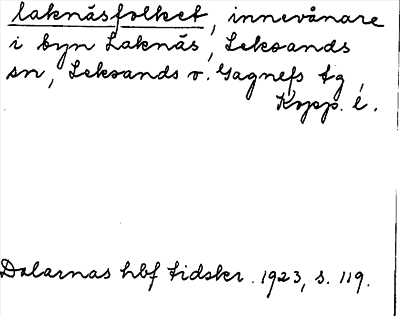 laknäsfolket, innevånare
i byn Laknäs, Leksands
sn, Leksands o. Gagnefs tg,
Kopp. l.
Dalarnas hbf tidskr. 1923, s. 119.